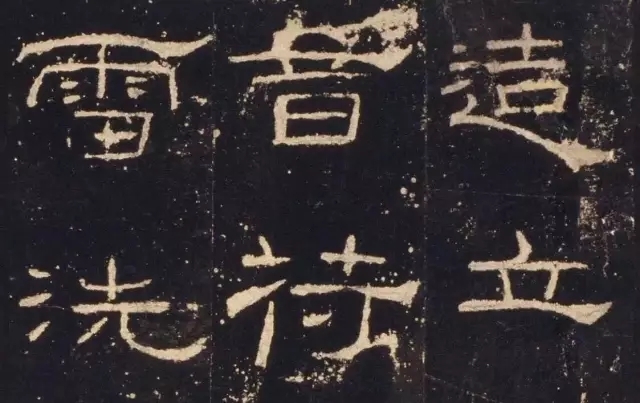 造立
音苻
雷洗